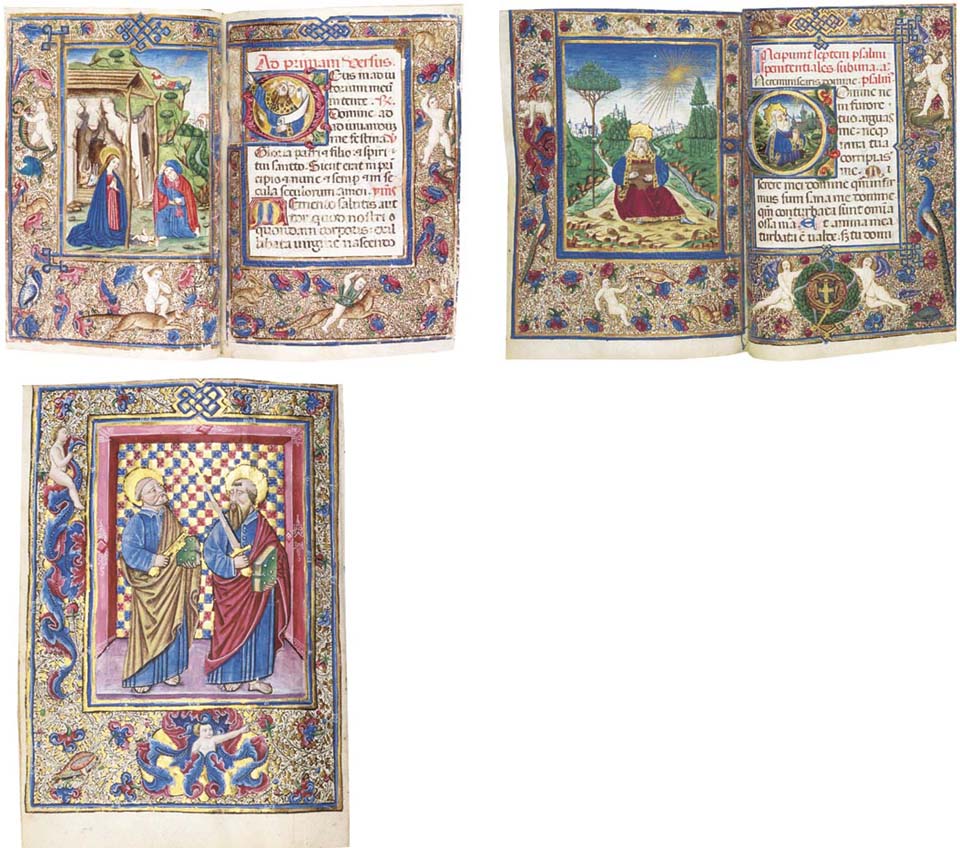 Ad primam versus.
Deus in adiu
torium meū
intende. R.
Domine ad
adiuuandū
me festina.
Gloria patri & filio & spiri
tui sancto. Sicut erat in pri
cipio & nunc & semp & in se
cula seculorum amen.
Memento salutis auc
tor quod nostri
quondam corporis: ex il
libata uirgine nascendo
Incipiunt septem psalmi
penitentiales.
Ne reminiscaris domine. psalm'
Domine ne
in furore
tuo arguas
me: neqp
in ira tua
corripias
me. Mi
serere mei domine qm̄ infir
mus sum sana me domine
qm̄ conturbata sunt omīa
ossa mea. Et anima mea
turbata ē ualde. sz tu domi